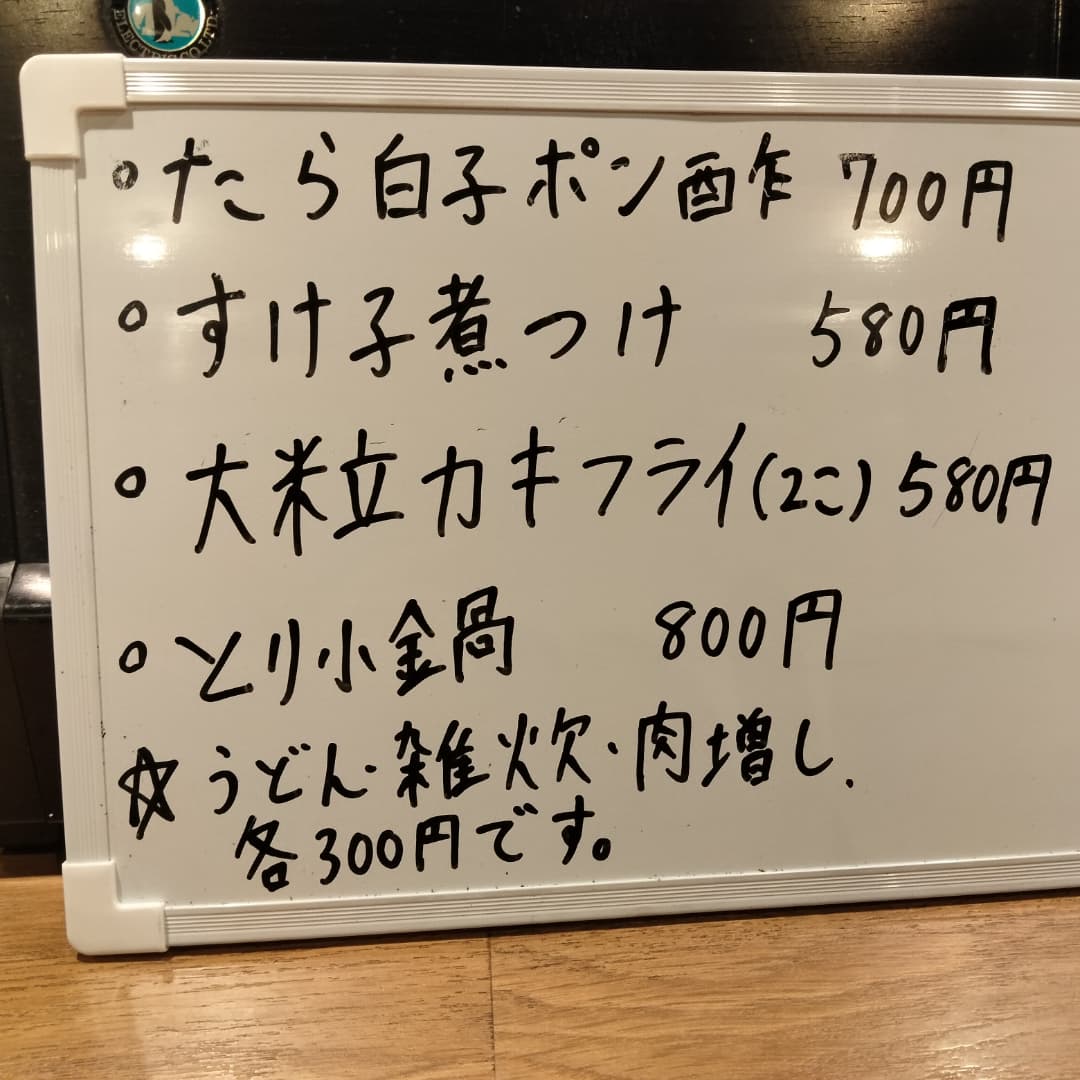 ELECTRIC CO.LTD
○たら白子ポン酢 700円
○すけ子煮つけ 580円
○大粒カキフライ(2こ) 580円
○とり小鍋 800円
☆うどん・雑炊・肉増し.
各300円です。